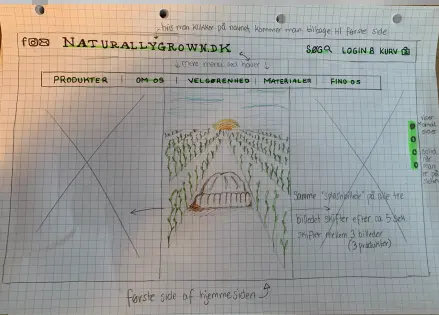 hvis man klikker på navnet kommer man tilbage til første side
NATURALLYGROWN.DK
SØG LOGIN KURV
↓ menu ved hover ↓
PRODUKTER | OM OS | VELGØRENHED | MATERIALER | FIND OS
Samme på alle tre
billedet skifter efter ca. 5 sek.
skifter mellem 3 billeder
(3 produkter)
første side af hjemmesiden